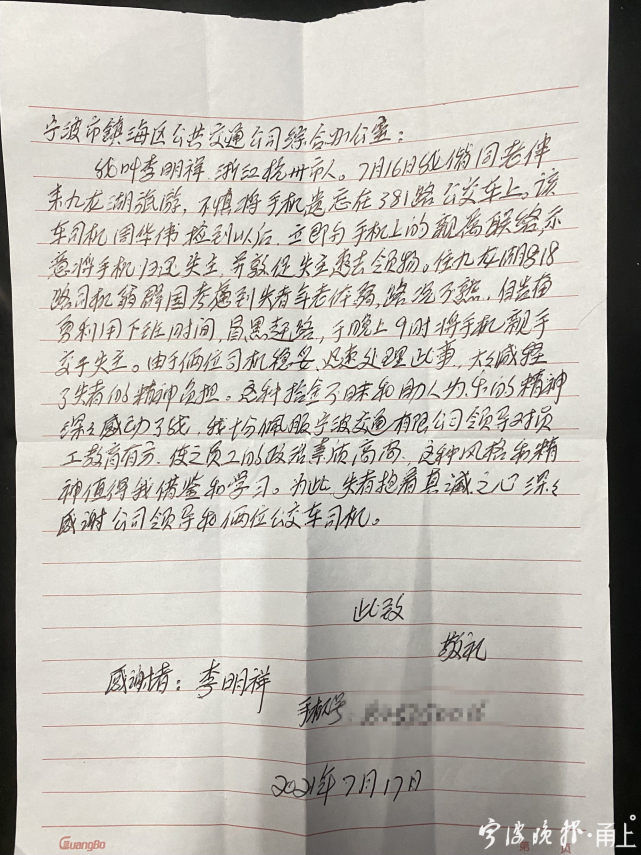 宁波市镇海区公共交通公司综合办公室：
我叫李明祥 浙江杭州市人。7月16日我偕同老伴
来九龙湖旅游，不慎将手机遗忘在381路公交车上。该
车司机周华伟捡到以后，立即与手机上的亲属联络，示
意将手机归还失主，并敦促失主速去领物。住九龙湖818
路司机 群国考虑到失者年老体弱，路况不熟，但
利用下班时间，冒黑赶路，于晚上9时将手机亲手
交于失主。由于俩位司机稳妥、迅速处理此事，大大减轻
了失者的精神负担。这种拾金不昧和助人为乐的精神
深深感动了我，我十分佩服宁波交通有限公司领导对员
工教育有方，使之员工的政治素质高尚，这种风格和精
神值得我借鉴和学习。为此，失者抱着真诚之心深深
感谢公司领导和俩位公交车司机。
此致
敬礼
感谢者：李明祥
手机号
2021年7月17日
GuangBo
第 页
宁波晚报·甬上